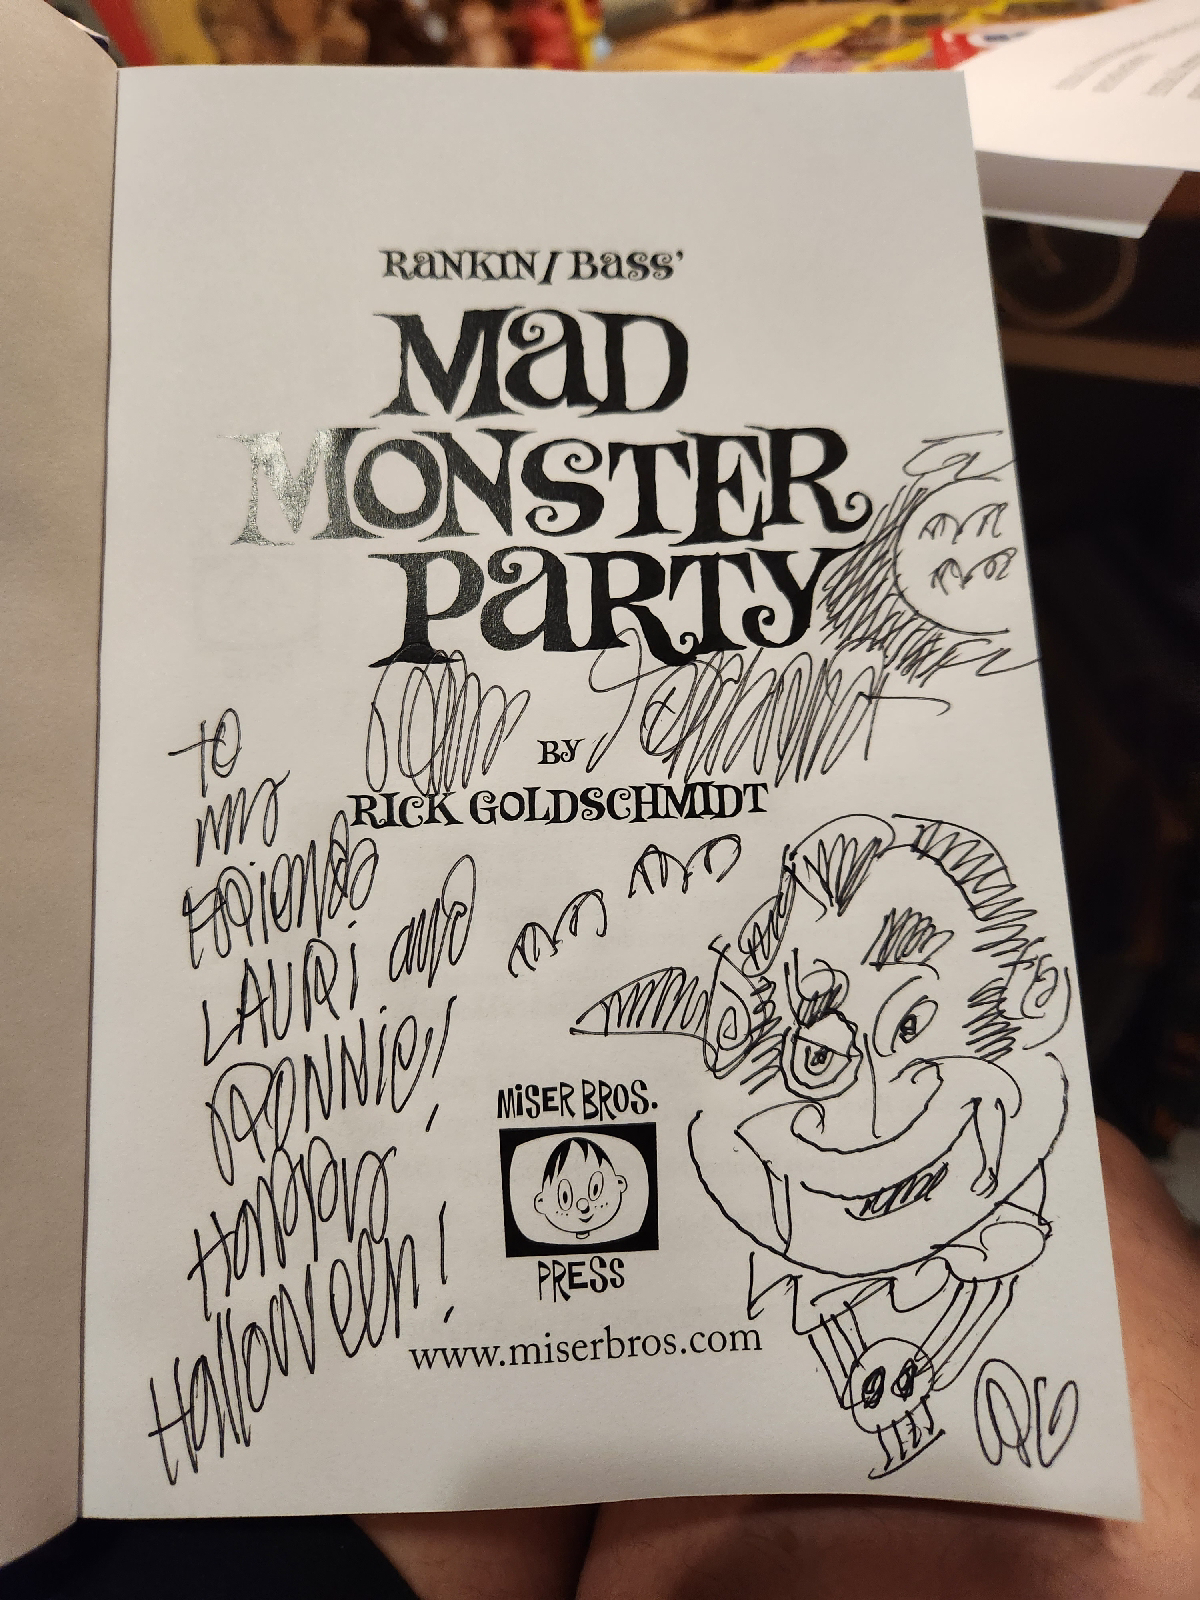 RANKIN/BASS'
MAD
MONSTER
PARTY
BY
RICK GOLDSCHMIDT
To
my
Friends
LAURI and
RONNIE!
Happy
Halloween!
MiSER BROS.
PRESS
www.miserbros.com
RG